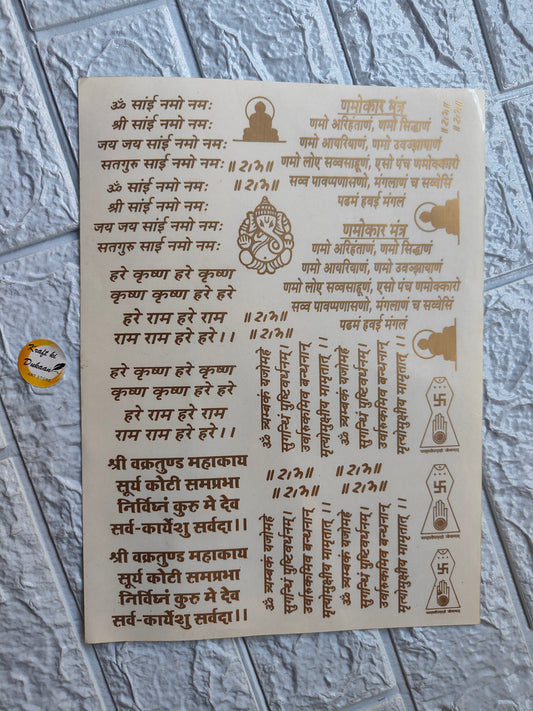 ॐ सांई नमो नमः
श्री सांई नमो नमः
जय जय सांई नमो नमः
सतगुरु साईं नमो नमः
ॐ सांई नमो नमः
श्री सांई नमो नमः
जय जय सांई नमो नमः
सतगुरु साईं नमो नमः
हरे कृष्ण हरे कृष्ण
कृष्ण कृष्ण हरे हरे
हरे राम हरे राम
राम राम हरे हरे।।
हरे कृष्ण हरे कृष्ण
कृष्ण कृष्ण हरे हरे
हरे राम हरे राम
राम राम हरे हरे।।
श्री वक्रतुण्ड महाकाय
सूर्य कोटी समप्रभा
निर्विघ्नं कुरु मे देव
सर्व-कार्येशु सर्वदा।।
श्री वक्रतुण्ड महाकाय
सूर्य कोटी समप्रभा
निर्विघ्नं कुरु मे देव
सर्व-कार्येशु सर्वदा।।
णमोकार मंत्र
णमो अरिहंताणं, णमो सिद्धाणं
णमो आयरियाणं, णमो उवज्झायाणं
णमो लोए सव्वसाहूणं, एसो पंच णमोक्कारो
सव्व पावप्पणासणो, मंगलाणं च सव्वेसिं
पढमं हवई मंगलं
णमोकार मंत्र
णमो अरिहंताणं, णमो सिद्धाणं
णमो आयरियाणं, णमो उवज्झायाणं
णमो लोए सव्वसाहूणं, एसो पंच णमोक्कारो
सव्व पावप्पणासणो, मंगलाणं च सव्वेसिं
पढमं हवई मंगलं
ॐ त्र्यम्बकं यजामहे
सुगन्धिं पुष्टिवर्धनम्
उर्वारुकमिव बन्धनान्
मृत्योर्मुक्षीय मामृतात् ।।
ॐ त्र्यम्बकं यजामहे
सुगन्धिं पुष्टिवर्धनम्
उर्वारुकमिव बन्धनान्
मृत्योर्मुक्षीय मामृतात् ।।
ॐ त्र्यम्बकं यजामहे
सुगन्धिं पुष्टिवर्धनम्
उर्वारुकमिव बन्धनान्
मृत्योर्मुक्षीय मामृतात् ।।
ॐ त्र्यम्बकं यजामहे
सुगन्धिं पुष्टिवर्धनम्
उर्वारुकमिव बन्धनान्
मृत्योर्मुक्षीय मामृतात् ।।
Kraft ki
Dukaan